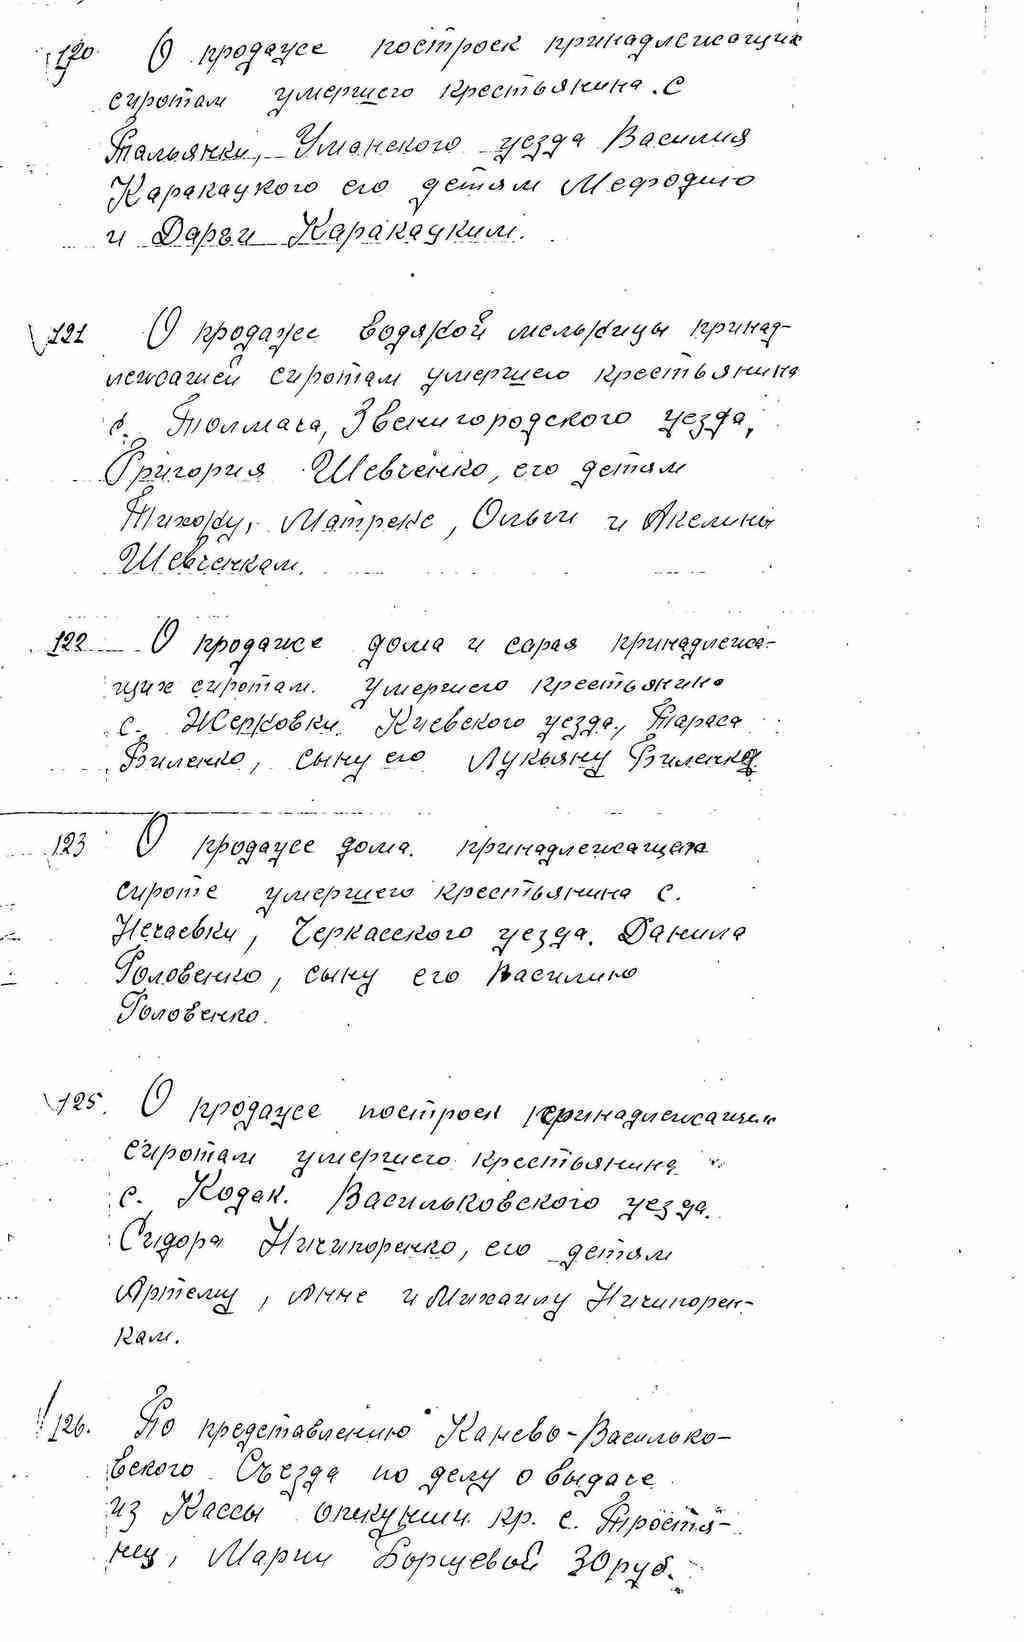 120 О продаже построек принадлежащих
сиротам умершего крестьянина. с
Тальянки, Уманского уезда Василия
Каракацкого его детям Мефодию
и Дарьи Каракацким.
121 О продаже водяной мельницы принад-
лежащей сиротам умершего крестьянина
с. Толмача, Звенигородского уезда,
Григория Шевченко, его детям
Тихону, Матрене, Ольги и Акелины
Шевченкам.
122 О продаже дома и сарая принадлежа-
щих сиротам. умершего крестьянина
с. Жерновки Киевского уезда, Тараса
Биленко, сыну его Лукьяну Биленко
123 О продаже дома. принадлежащего
сироте умершего крестьянина с.
Нечаевки, Черкасского уезда. Данила
Головенко, сыну его Василию
Головенко.
125. О продаже построек принадлежащих
сиротам умершего крестьянина
с. Кодак. Васильковского уезда.
Сидора Ничипоренко, его детям
Артему, Анне и Михаилу Ничипорен-
кам.
126. По представлению Канево-Василько-
вского Съезда по делу о выдаче
из Кассы опекунши кр. с. Тростя-
нец, Марии Борщевой 30 руб.